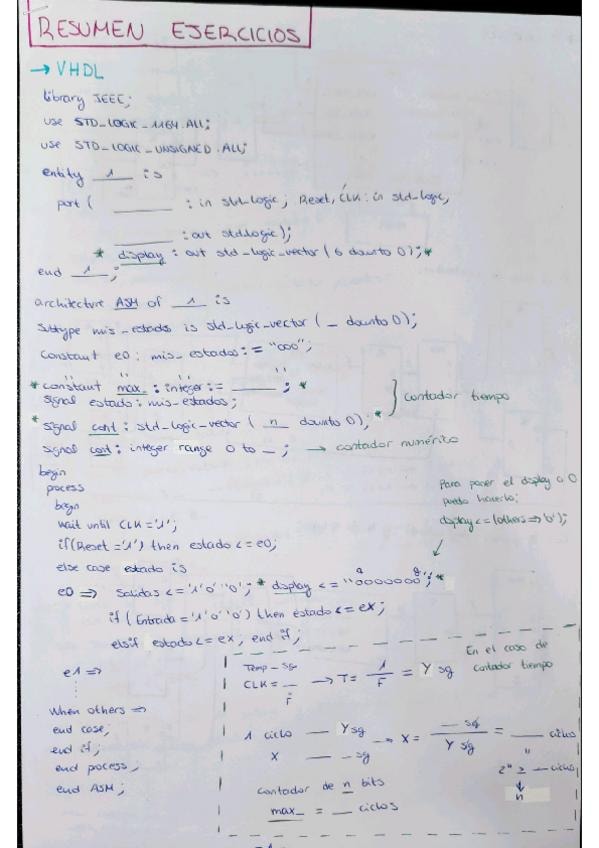 RESUMEN EJERCICIOS
→ VHDL
library IEEE;
use STD_LOGIC_1164.ALL;
use STD_LOGIC_UNSIGNED.ALL;
entity __1__ is
port ( ______ : in std_logic; Reset, CLK: in std_logic,
______ : out std_logic);
* display : out std_logic_vector (6 downto 0); *
end __1__;
architecture ASM of __1__ is
Subtype mis_estados is std_logic_vector ( _ downto 0);
Constant e0: mis_estados := "000";
" " "
* constant max_ : integer := _____ ; *
signal estado: mis_estados;
} contador tiempo
* signal cont : std_logic_vector ( _n_ downto 0); *
signal cont: integer range 0 to _ ; → contador numérico
begin
process
begin
Para poner el display a 0
puedo hacerlo:
display <= (others => '0');
wait until CLK='1';
if(Reset='1') then estado <= e0;
else case estado is
a g
e0 => Salidas <= '1' o '0'; * display <= "0000000"; *
if (Entrada = '1' o '0') then estado <= ex;
elsif estado <= ex, end if;
e1 =>
When others =>
end case;
end if;
end process,
end ASM;
En el caso de
contador tiempo
Temp _ sg
CLK = _ → T = 1/F = Y sg
F
1 ciclo __ Y sg
X __ _ sg → X = __ sg / Y sg = ___ ciclos
"
2ⁿ ≥ __ ciclos
↓
n
contador de n bits
max_ = __ ciclos